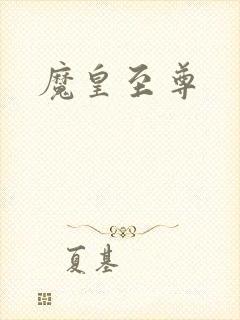 魔皇至尊
夏基